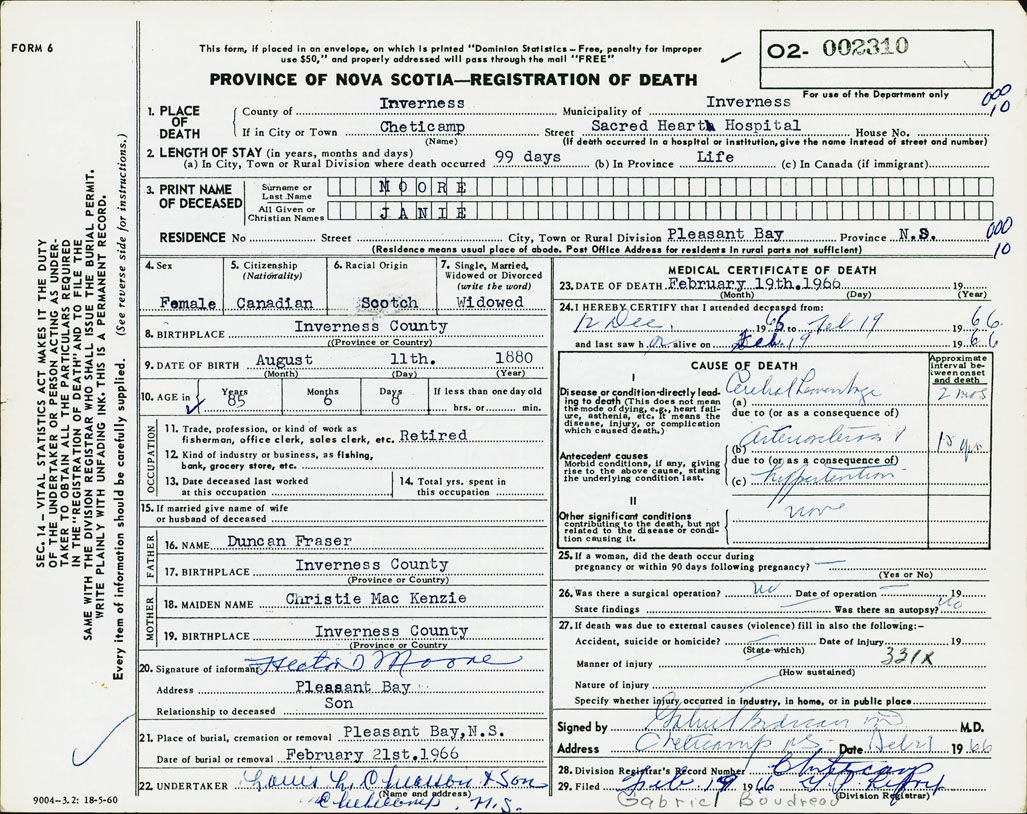 FORM 6
This form, if placed in an envelope, on which is printed "Dominion Statistics – Free, penalty for improper
use $50," and properly addressed will pass through the mail "FREE"
PROVINCE OF NOVA SCOTIA—REGISTRATION OF DEATH
O2- 002310
For use of the Department only
000
10
1. PLACE OF DEATH
County of Inverness Municipality of Inverness
If in City or Town Cheticamp Street Sacred Heart Hospital House No.
(Name) (If death occurred in a hospital or institution, give the name instead of street and number)
2. LENGTH OF STAY (in years, months and days)
(a) In City, Town or Rural Division where death occurred 99 days (b) In Province Life (c) In Canada (if immigrant)
3. PRINT NAME OF DECEASED
Surname or Last Name MOORE
All Given or Christian Names JANIE
RESIDENCE No Street City, Town or Rural Division Pleasant Bay Province N.S.
(Residence means usual place of abode. Post Office Address for residents in rural parts not sufficient)
000
10
4. Sex Female
5. Citizenship (Nationality) Canadian
6. Racial Origin Scotch
7. Single, Married, Widowed or Divorced (write the word) Widowed
8. BIRTHPLACE Inverness County
((Province or County)
9. DATE OF BIRTH August 11th. 1880
(Month) (Day) (Year)
10. AGE in Years 85 Months 6 Days 8 If less than one day old
hrs. or min.
OCCUPATION
11. Trade, profession, or kind of work as
fisherman, office clerk, sales clerk, etc. Retired
12. Kind of industry or business, as fishing,
bank, grocery store, etc.
13. Date deceased last worked
at this occupation
14. Total yrs. spent in
this occupation
15. If married give name of wife
or husband of deceased
FATHER
16. NAME Duncan Fraser
17. BIRTHPLACE Inverness County
(Province or Country)
MOTHER
18. MAIDEN NAME Christie Mac Kenzie
19. BIRTHPLACE Inverness County
(Province or Country
20. Signature of informant Hector D Moore
Address Pleasant Bay
Relationship to deceased Son
21. Place of burial, cremation or removal Pleasant Bay, N.S.
Date of burial or removal February 21st.1966
22. UNDERTAKER Louis L. Chiasson & Son
(Name and address)
Cheticamp, N.S.
MEDICAL CERTIFICATE OF DEATH
23. DATE OF DEATH February 19th.1966 19
(Month) (Day) (Year)
24. I HEREBY CERTIFY that I attended deceased from:
12 Dec, 1965 to Feb 19 1966.
and last saw h alive on Feb. 19 1966
CAUSE OF DEATH
Approximate interval between onset and death
I
Disease or condition directly leading to death (This does not mean the mode of dying, e.g., heart failure, asthenia, etc. It means the disease, injury, or complication which caused death.)
(a) Cerebral hemorrhage 2 mos
due to (or as a consequence of)
Antecedent causes
Morbid conditions, if any, giving rise to the above cause, stating the underlying condition last.
(b) arteriosclerosis & 15 yrs
due to (or as a consequence of)
(c) hypertention
II
Other significant conditions
contributing to the death, but not related to the disease or condition causing it.
none
25. If a woman, did the death occur during
pregnancy or within 90 days following pregnancy? —
(Yes or No)
26. Was there a surgical operation? no Date of operation — 19
State findings Was there an autopsy? no
27. If death was due to external causes (violence) fill in also the following:–
Accident, suicide or homicide? Date of injury 19
(State which)
Manner of injury 331X
(How sustained)
Nature of injury
Specify whether injury occurred in industry, in home, or in public place
Signed by Gabriel Boudreau MD M.D.
Address Cheticamp NS. Date Feb 21 1966
28. Division Registrar's Record Number Cheticamp
29. Filed Feb 19 1966
(Division Registrar)
Gabriel Boudreau
SEC. 14 – VITAL STATISTICS ACT MAKES IT THE DUTY
OF THE UNDERTAKER OR PERSON ACTING AS UNDER-
TAKER TO OBTAIN ALL THE PARTICULARS REQUIRED
IN THE "REGISTRATION OF DEATH" AND TO FILE THE
SAME WITH THE DIVISION REGISTRAR WHO SHALL ISSUE THE BURIAL PERMIT.
WRITE PLAINLY WITH UNFADING INK. THIS IS A PERMANENT RECORD.
Every item of information should be carefully supplied. (See reverse side for instructions.)
9004–3.2: 18-5-60